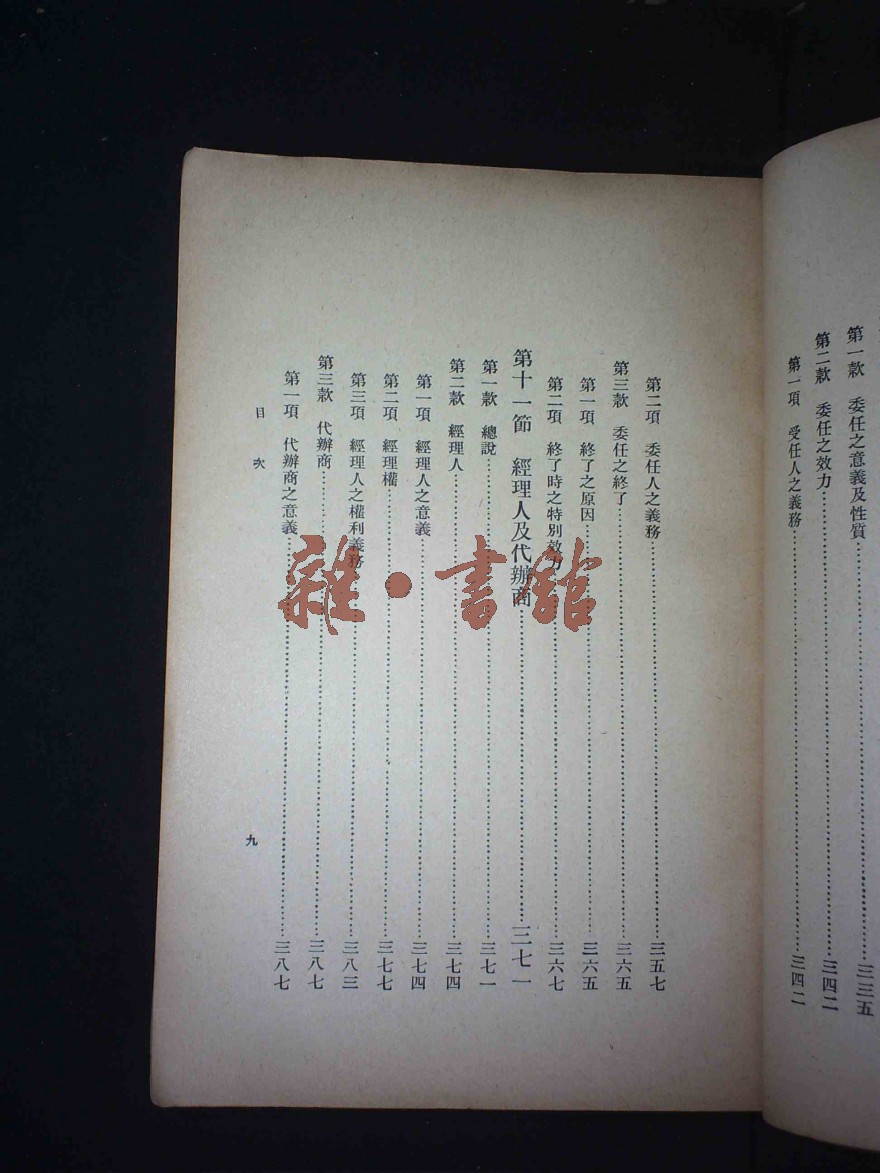 第一款　委任之意義及性質……三三五
第二款　委任之效力……三四二
第一項　受任人之義務……三四二
第二項　委任人之義務……三五七
第三款　委任之終了……三六五
第一項　終了之原因……三六五
第二項　終了時之特別效力……三六七
第十一節　經理人及代辦商……三七一
第一款　總說……三七一
第二款　經理人……三七四
第一項　經理人之意義……三七四
第二項　經理權……三七七
第三項　經理人之權利義務……三八三
第三款　代辦商……三八七
第一項　代辦商之意義……三八七
目次
九
雜·書館